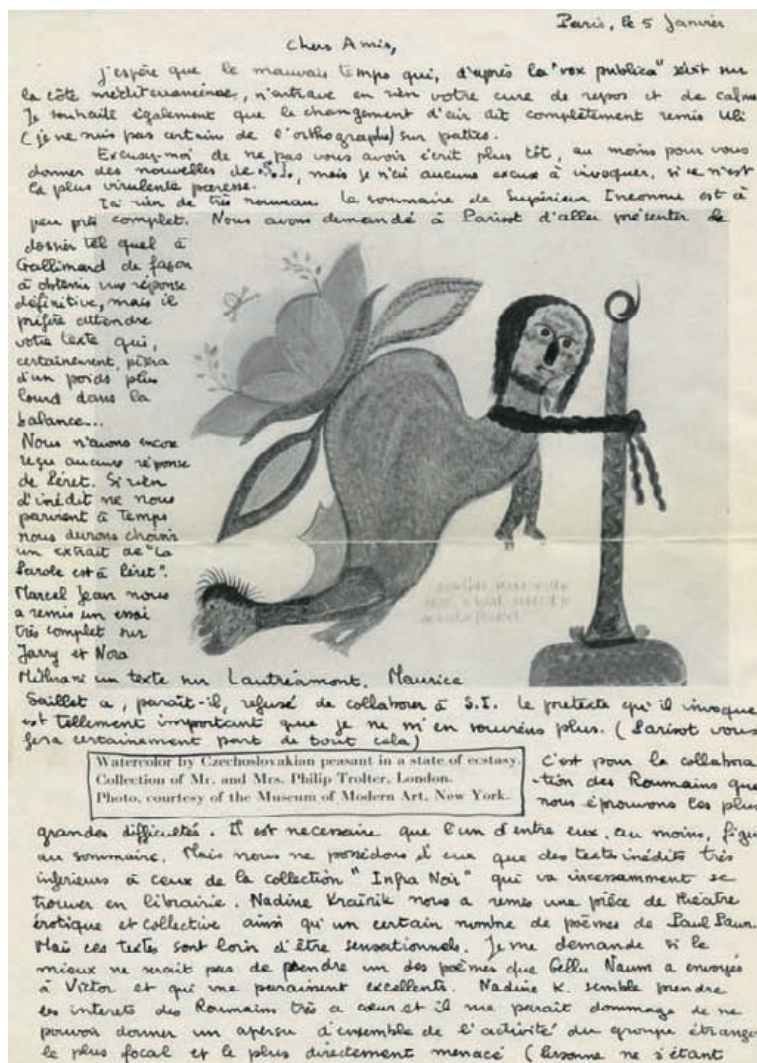 Paris, le 5 Janvier
Chers Amis,
J'espère que le mauvais temps qui, d'après la "vox publica" sévit sur
la côte méditerranéenne, n'entrave en rien votre cure de repos et de calme
Je souhaite également que le changement d'air ait complètement remis Uli
(je ne suis pas certain de l'orthographe) sur pattes.
Excusez-moi de ne pas vous avoir écrit plus tôt, au moins pour vous
donner des nouvelles de S.I., mais je n'ai aucune excuse à invoquer, si ce n'est
la plus virulente paresse.
rien de très nouveau. Le sommaire de Supérieur Inconnu est à
peu près complet. Nous avons demandé à Parisot d'aller présenter le
dossier tel quel à
Gallimard de façon
à obtenir une réponse
définitive, mais il
préfère attendre
votre texte qui,
certainement, pèsera
d'un poids plus
lourd dans la
balance...
Nous n'avons encore
reçu aucune réponse
de Péret. Si rien
d'inédit ne nous
parvient à temps
nous devrons choisir
un extrait de "La
Parole est à Péret".
Marcel Jean nous
a remis un essai
très complet sur
Jarry et Nora
Mithrani un texte sur Lautréamont. Maurice
Saillet a, paraît-il, refusé de collaborer à S.I. Le pretexte qu'il invoque
est tellement important que je ne m'en souviens plus. (Parisot vous
fera certainement part de tout cela)
Watercolor by Czechoslovakian peasant in a state of ecstasy.
Collection of Mr. and Mrs. Philip Trolter, London.
Photo, courtesy of the Museum of Modern Art, New York.
C'est pour la collabora
-tion des Roumains que
nous éprouvons les plus
grandes difficultés. Il est necessaire que l'un d'entre eux, au moins, figu
au sommaire. Mais nous ne possédons d'eux que des textes inédits très
inferieurs à ceux de la collection "Infra Noir" qui va incessamment se
trouver en librairie. Nadine Kraïnik nous a remis une pièce de théatre
érotique et collective ainsi qu'un certain nombre de poèmes de Paul Paun.
Mais ces textes sont loin d'être sensationnels. Je me demande si le
mieux ne serait pas de prendre un des poèmes que Gellu Naum a envoyés
à Victor et qui me paraissent excellents. Nadine K. semble prendre
les interets des Roumains très a cœur et il me parait dommage de ne
pouvoir donner un aperçu d'ensemble de l'activité du groupe étranger
le plus focal et le plus directement menacé (personne ne s'étant